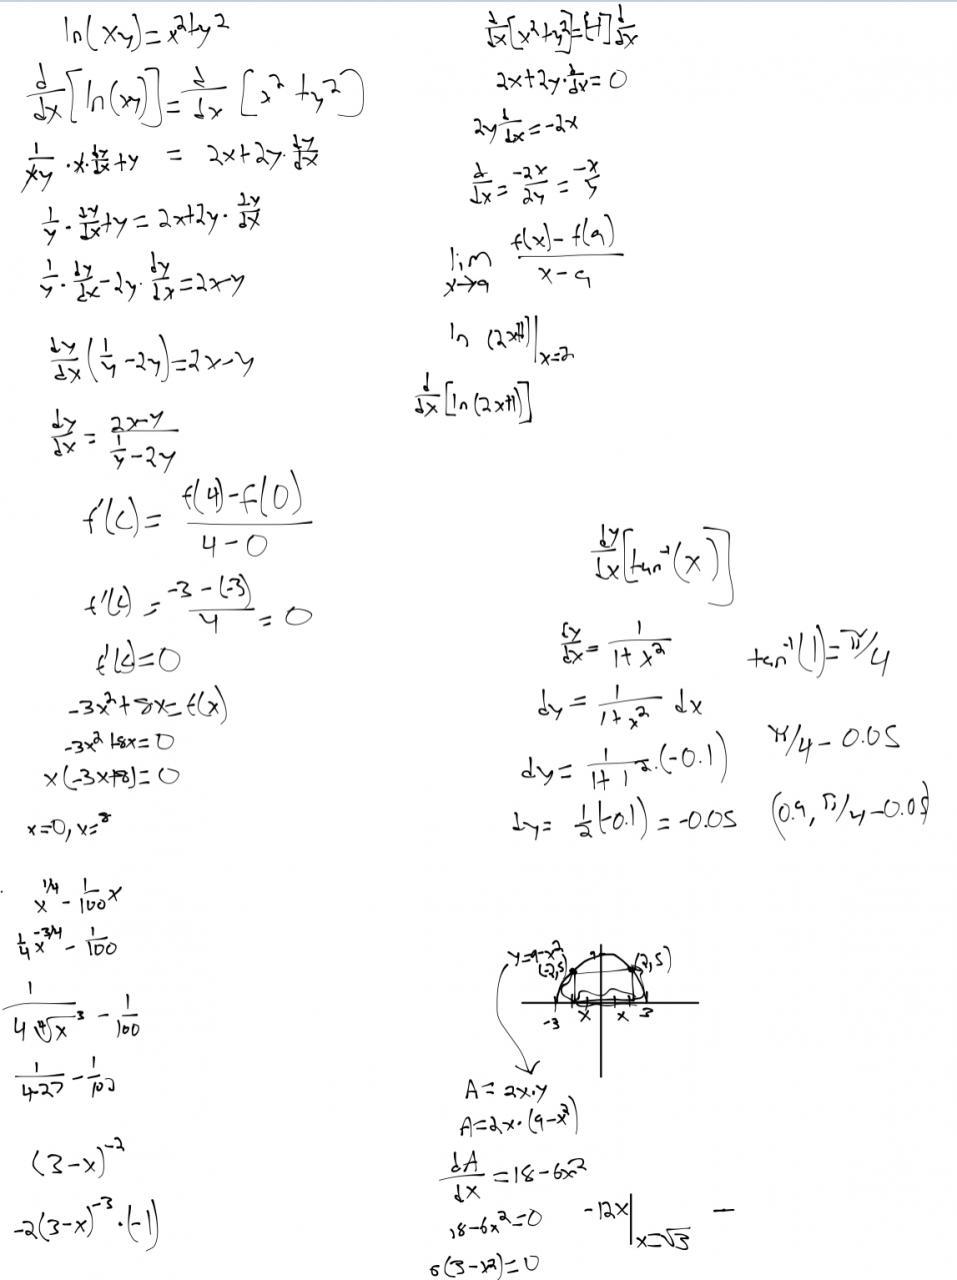 ln(xy)=x²+y²
d/dx[ln(xy)]=d/dx[x²+y²]
1/xy·x·dy/dx+y = 2x+2y·dy/dx
1/y·dy/dx+y=2x+2y·dy/dx
1/y·dy/dx-2y·dy/dx=2x-y
dy/dx(1/y-2y)=2x-y
dy/dx = (2x-y)/(1/y-2y)
f'(c)= (f(4)-f(0))/(4-0)
f'(c) = (-3-(-3))/4 = 0
f'(c)=0
-3x²+8x=f(x)
-3x²+8x=0
x(-3x+8)=0
x=0, x=8
x^1/4 - 1/100 x
1/4 x^-3/4 - 1/100
1/(4 ∜x³) - 1/100
1/(4·27) - 1/100
(3-x)^-2
-2(3-x)^-3·(-1)
d/dx[x²+y²]=[-1]d/dx
2x+2y·d/dx=0
2y d/dx=-2x
d/dx = -2x/2y = -x/y
lim x→a (f(x)-f(a))/(x-a)
ln (2x+1)|x=2
d/dx[ln(2x+1)]
dy/dx[tan^-1(x)]
dy/dx = 1/(1+x²)
tan^-1(1)=π/4
dy = 1/(1+x²) dx
π/4 - 0.05
dy = 1/(1+1²)·(-0.1)
dy = 1/2(-0.1) = -0.05
(0.9, π/4-0.05)
y=9-x²
9
(-2,5)
(2,5)
-3
x
x
3
A= 2x·y
A=2x·(9-x²)
dA/dx = 18-6x²
18-6x²=0
-12x|x=√3
-
6(3-x²)=0